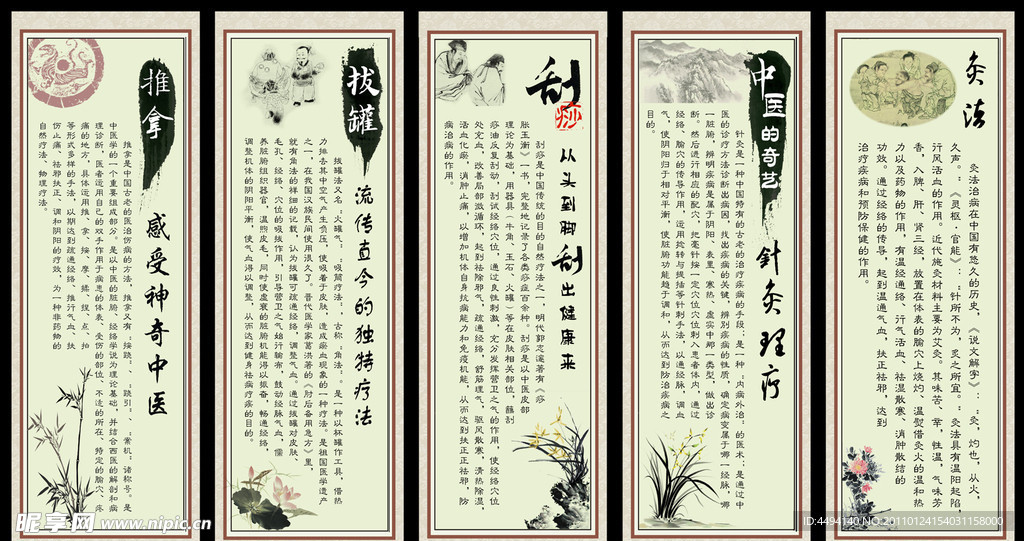 推拿
感受神奇中医
推拿是中国古老的医治伤病的方法，推拿又有：按跷：、：跷引：、：案杌：诸称号。是
中医学的一个重要组成部分。是以中医的脏腑、经络学说为理论基础，并结合西医的解剖和病
理诊断，医者运用自己的双手作用于病患的体表、受伤的部位、不适的所在、特定的腧穴、疼
痛的地方，具体运用推、拿、按、摩、揉、捏、点、拍
等形式多样的手法，以期达到疏通经络、推行气血、扶
伤止痛、祛邪扶正、调和阴阳的疗效，为一种非药物的
自然疗法、物理疗法。
拔罐
流传直今的独特疗法
拔罐法又名：火罐气：：吸筒疗法：，古称：角法：。是一种以杯罐作工具，借热
力排去其中空气产生负压，使吸着于皮肤，造成瘀血现象的一种疗法。是祖国医学遗产
之一，在我国汉族民间使用很久了。晋代医学家葛洪著的《肘后备用急方》里，
就有角法的祥细的记载，认为拔罐可疏通经络，调整气血。通过拔罐对皮肤、
毛孔、经络、穴位的吸拔作用，引导营卫之气始汗输布，鼓动经脉气血，儒
养脏腑组织器官，温煦皮毛，同时使虚衰的脏腑机能得以振奋，畅通经络，
调整机体的阴阳平衡，使气血得以调整，从而达到健身祛病疗疾的目的。
刮痧
从头到脚刮出健康来
刮痧是中国传统的目的自然疗法之一，明代郭志邃著有《痧
胀玉衡》一书，完整地记录了各类痧症百余种。刮痧是以中医皮部
理论为基础，用器具（牛角、玉石、火罐）等在皮肤相关部位，蘸刮
痧油反复刮动，刮试经络穴位，通过良性刺激，充分发挥营卫之气的作用，使经络穴位
处充血，改善局部激循环，起到祛除邪气，疏通经络，舒筋理气，驱风散寒，清热除湿，
活血化瘀，消肿止痛，以增加机体自身抗病能力和免疫机能，从而达到扶正正祛邪，防
病治病的作用。
中医的奇艺
针灸理疗
针灸是一种中国特有的古老的治疗疾病的手段；是一种：内病外治：的医术；是通过中
医的诊疗方法诊断出病因，找出疾病的关键，辨别疾病的性质，确定病变属于哪一经脉，哪
一脏腑，辨明疾病是属于阴阳、表里、寒热、虚实中那一类型，做出诊
断。然后进行相应的配穴，把毫针按一定穴位穴位刺入患者体内，通过
经络、腧穴的传导作用，运用捻转与提插等针刺手法，以通经脉，调血
气，使阴阳归于相对平衡，使脏腑功能趋于调和，从而达到防治疾病之
目的。
灸法
灸法治病在中国有悠久的历史，《说文解字》：：灸，灼也，从火，
久声。：《灵枢·官能》：：针所不为，灸之所宜。：灸法具有温阳起陷，
汗风活血的作用。近代施灸材料主要为艾灸。其味苦、辛，性温，气味芳
香，入脾、肝、肾三经，放置在体表的腧穴上烧灼、温熨借灸火的温和热
力以及药物的作用，有温经通络、汗气活血、祛湿散寒，消肿散结的
功效。通过经络的传导，起到温通气血，扶正祛邪，达到
治疗疾病和预防保健的作用。
昵享网 www.nipic.cn
ID:4494140 NO:20110124154031158000